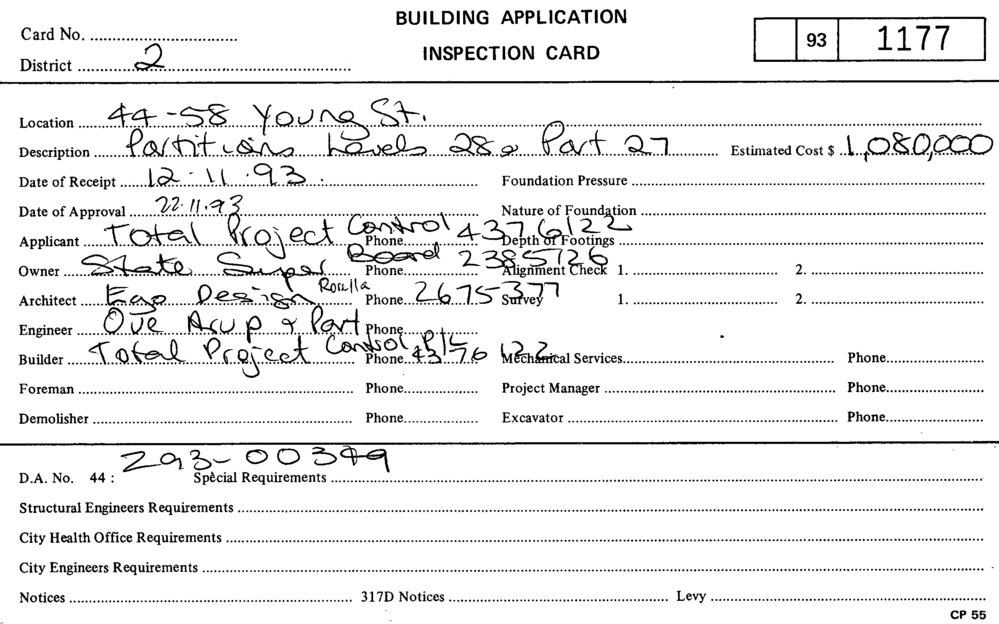 BUILDING APPLICATION
INSPECTION CARD
Card No.
District 2
93 1177
Location 44-58 Young St.
Description Partitions Levels 28 & Part 27 Estimated Cost $ 1,080,000
Date of Receipt 12.11.93. Foundation Pressure
Date of Approval 22.11.93 Nature of Foundation
Applicant Total Project Control Phone 4376122 Depth of Footings
Owner State Super Board Phone 2385726 Alignment Check 1. 2.
Architect Ego Design Phone 2675377 Survey 1. 2.
Engineer Ove Arup & Part Phone
Builder Total Project Control P/L Phone 4376122 Mechanical Services Phone
Foreman Phone Project Manager Phone
Demolisher Phone Excavator Phone
D.A. No. 44 : Z93-00349 Special Requirements
Structural Engineers Requirements
City Health Office Requirements
City Engineers Requirements
Notices 317D Notices Levy
CP 55